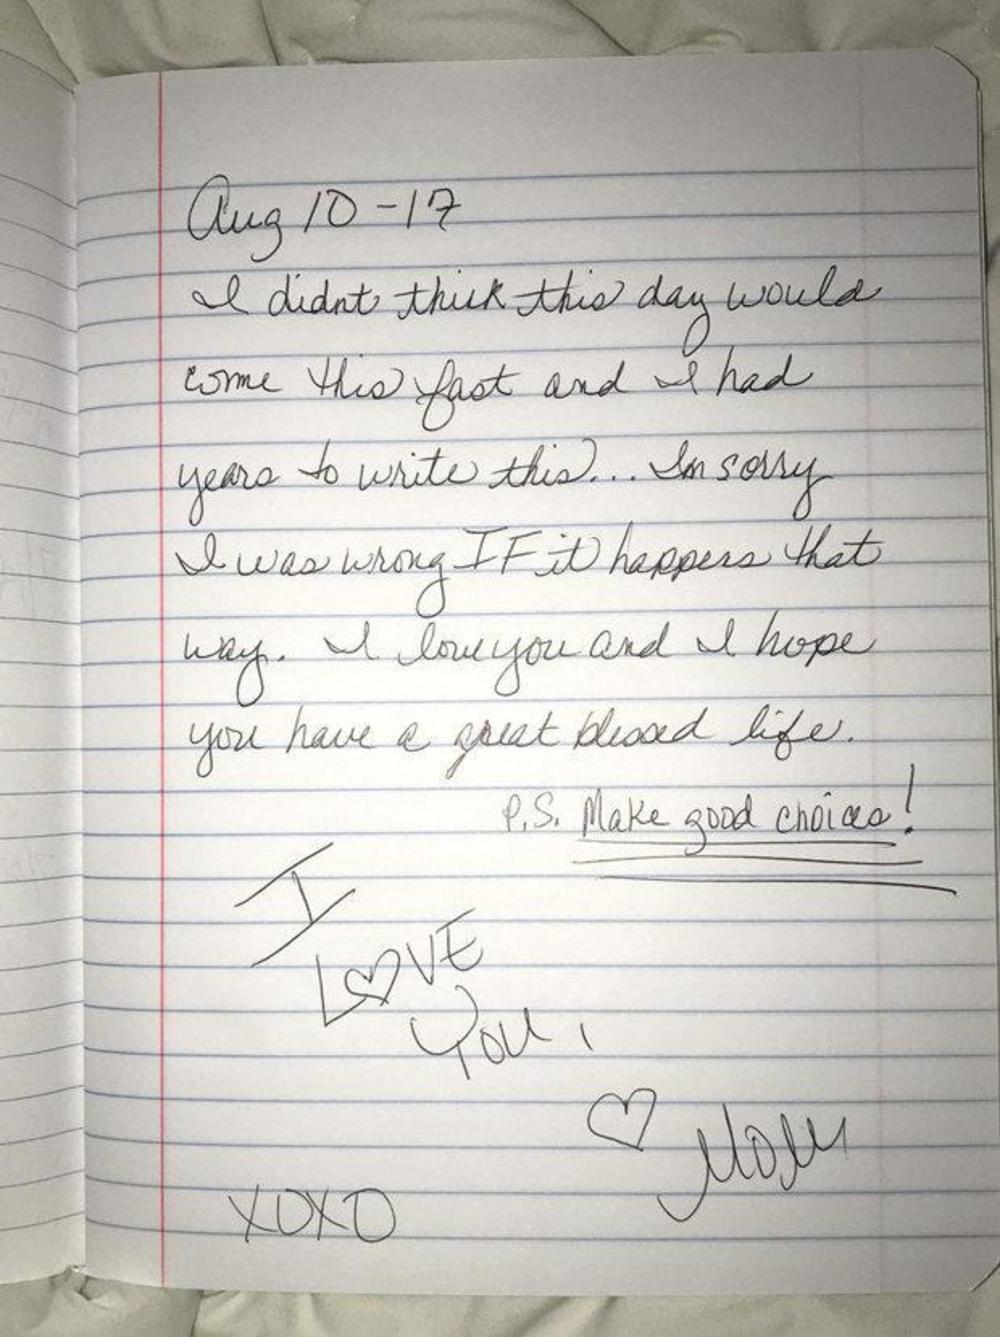 Aug 10-17
I didnt think this day would
come this fast and I had
years to write this... Im sorry
I was wrong IF it happens that
way. I love you and I hope
you have a great blessed life.
P.S. Make good choices!
I
LOVE
You,
♡ Mom
XOXO